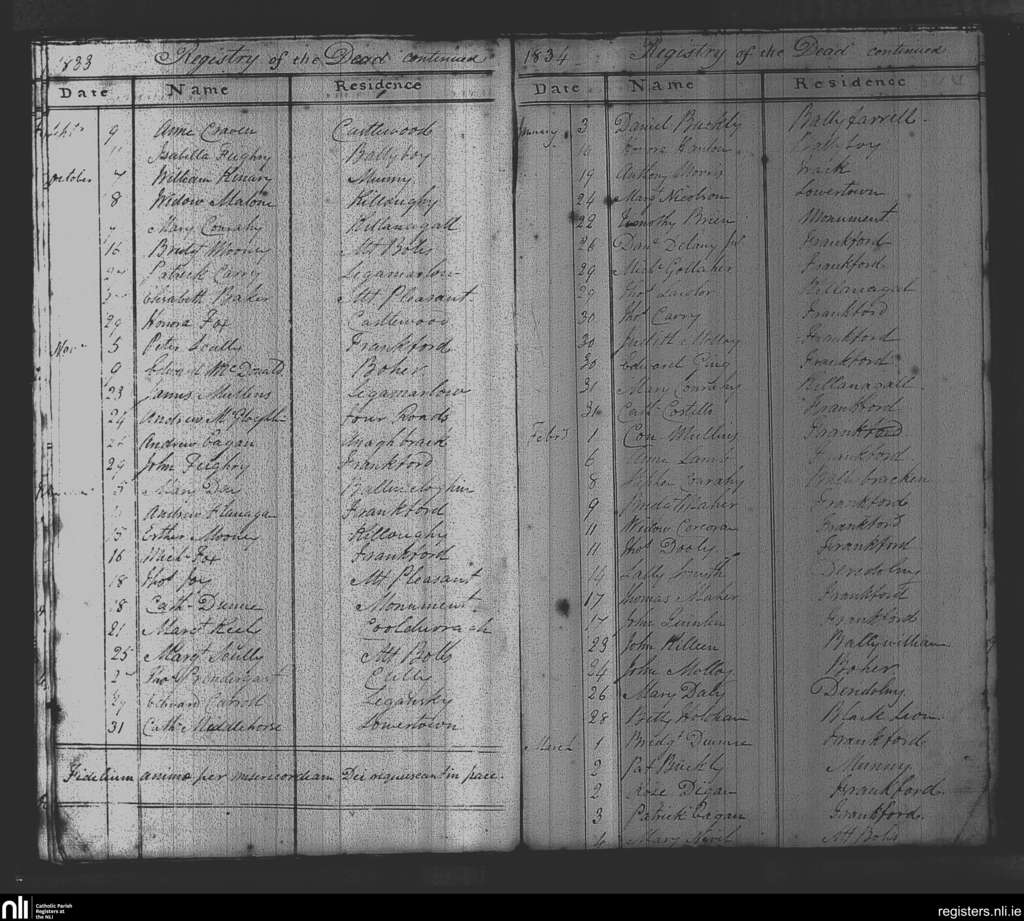 1833 Registry of the Dead continued
Date Name Residence
9 Anne Craven Castlewood
11 Isabella Feighry Ballyboy
October 7 William Kinary Munny
8 Widow Malone Killoughy
Mary Conrahy Killanagall
16 Bridgt Mooney Mt Bolls
Patrick Carry Legamarlow
Elizabeth Baker Mt Pleasant
29 Honora Fox Castlewood
Novr 5 Peter Scully Frankford
9 Edward McDonald Boher
23 James Mullens Legamarlow
24 Andrew Four Roads
Andrew Eagan
29 John Feighry Frankford
5 Mary
Andrew Flanagan Frankford
15 Esther Mooney Killoughy
16 Michl Fox Frankford
18 Thos Joy Mt Pleasant
18 Cath Dunne Monument
21 Margt Keely
25 Margt Scully Mt Bolls
Thos Prendergast
29 Edward Carroll
31 Cath Maddlehorse Lowertown
Fidelium animæ per misericordeam Dei requiescant in pace.
1834 Registry of the Dead continued
Date Name Residence
January 3 Daniel Buckly Ballyfarrell
16 Honora Hanlon Ballyboy
19 Anthony Morris
24 Margt Nicolson Lowertown
22 Timothy Brien Monument
26 Danl Delany Jr Frankford
29 Michl Gollaher Frankford
29 Thos Lawlor Killanagall
30 Thos Carry Frankford
30 Judith Molloy Frankford
30 Edward Guig Frankford
31 Mary Conrahy Killanagall
31 Cath Costillo Frankford
Febry 1 Con Mullins Frankford
6 Anne Lamb Frankford
8 Stephen Conrahy
9 Bridgt Maher Frankford
11 Widow Corcoran Frankford
11 Thos Dooly Frankford
14 Lally Smith Derrdolny
17 Thomas Maher Frankford
17 John Frankford
23 John Killeen Ballywilliam
24 John Molloy Boher
26 Mary Daly Derrdolny
28 Betty Holohan Black Lion
March 1 Bridgt Dunne Frankford
2 Pat Buckly Munny
2 Rose Digan Frankford
3 Patrick Eagan Frankford
4 Mary Nevil Mt Bolls
nli
Catholic Parish
Registers at
the NLI
registers.nli.ie